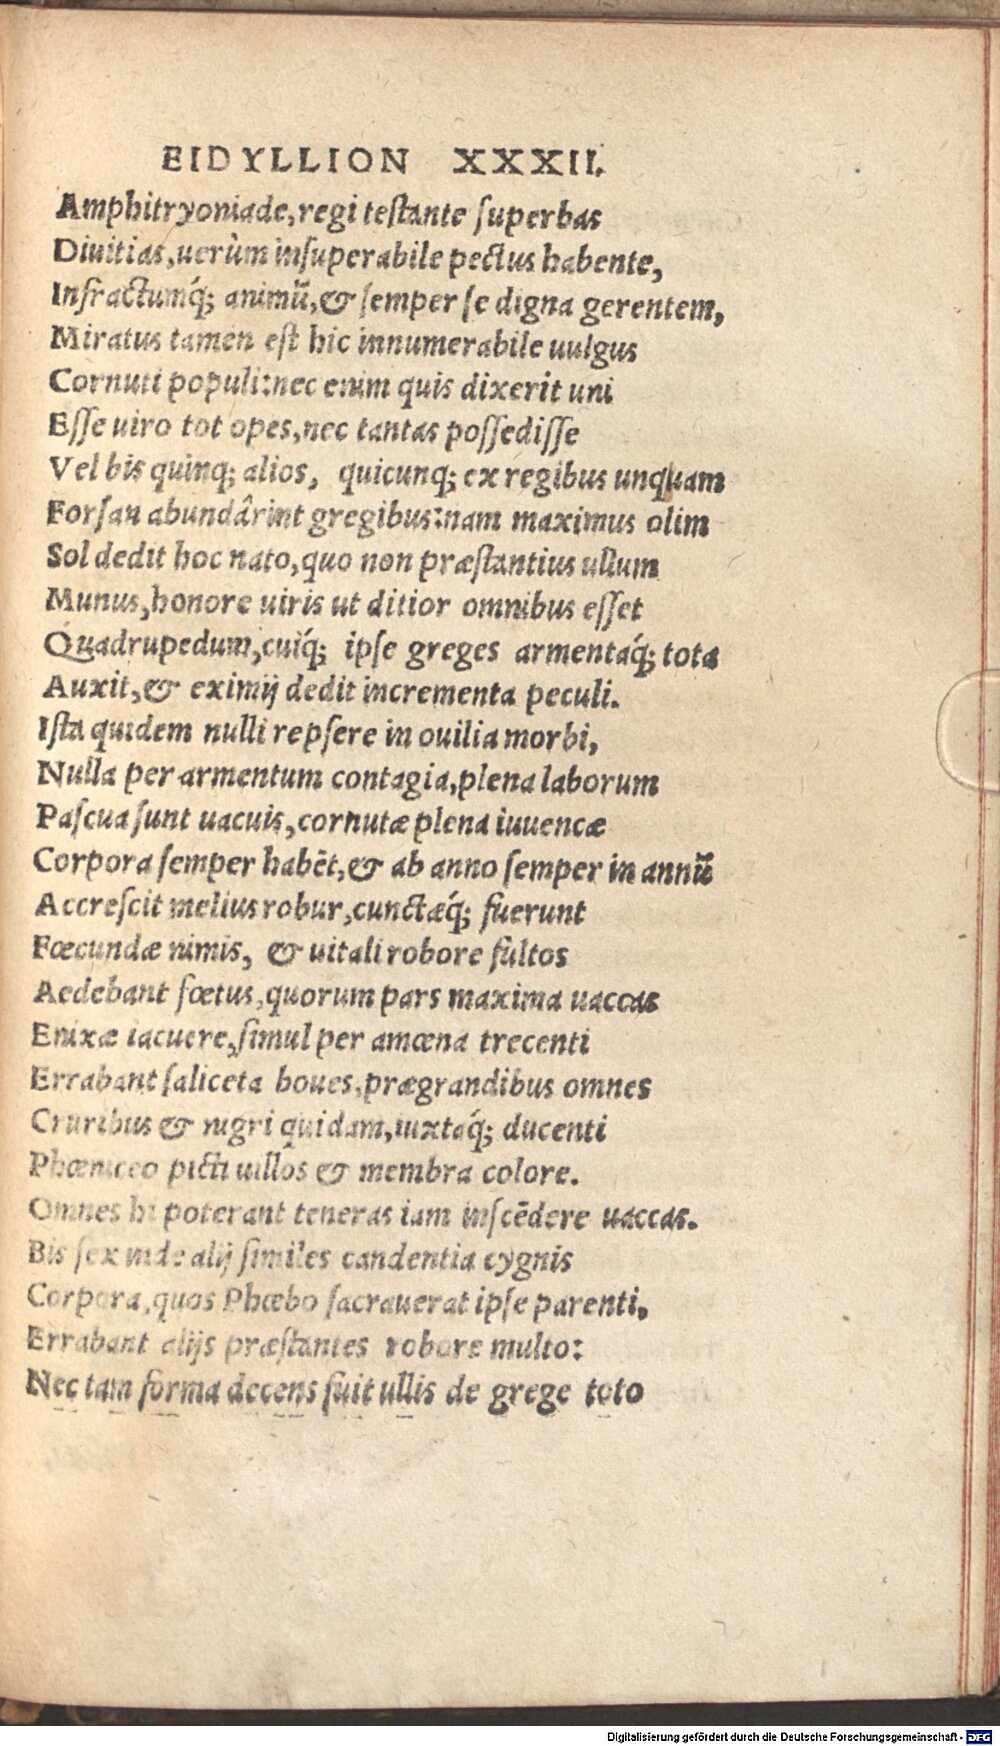 EIDYLLION XXXII.
Amphitryoniade,regi teſtante ſuperbas
Diuitias,uerùm inſuperabile pectus habente,
Infractumq́; animũ,& ſemper ſe digna gerentem,
Miratus tamen eſt hic innumerabile uulgus
Cornuti populi:nec enim quis dixerit uni
Eſſe uiro tot opes,nec tantas poſſediſſe
Vel bis quinq; alios, quicunq; ex regibus unquam
Forſan abundârint gregibus:nam maximus olim
Sol dedit hoc nato,quo non præſtantius ullum
Munus,honore uiris ut ditior omnibus eſſet
Quadrupedum,cuiq́; ipſe greges armentaq́; tota
Auxit,& eximij dedit incrementa peculi.
Iſta quidem nulli repſere in ouilia morbi,
Nulla per armentum contagia,plena laborum
Paſcua ſunt uacuis,cornutæ plena iuuencæ
Corpora ſemper habẽt,& ab anno ſemper in annũ
Accreſcit melius robur,cunctæq́; fuerunt
Fœcundæ nimis, & uitali robore fultos
Aedebant fœtus,quorum pars maxima uaccas
Enixæ iacuere,ſimul per amœna trecenti
Errabant ſaliceta boues,prægrandibus omnes
Cruribus & nigri quidam,iuxtaq́; ducenti
Phœniceo picti uillos & membra colore.
Omnes hi poterant teneras iam inſcẽdere uaccas.
Bis ſex inde alij ſimiles candentia cygnis
Corpora,quos Phœbo ſacrauerat ipſe parenti,
Errabant alijs præſtantes robore multo:
Nec tam forma decens fuit ullis de grege toto
Digitalisierung gefördert durch die Deutsche Forschungsgemeinschaft - DFG